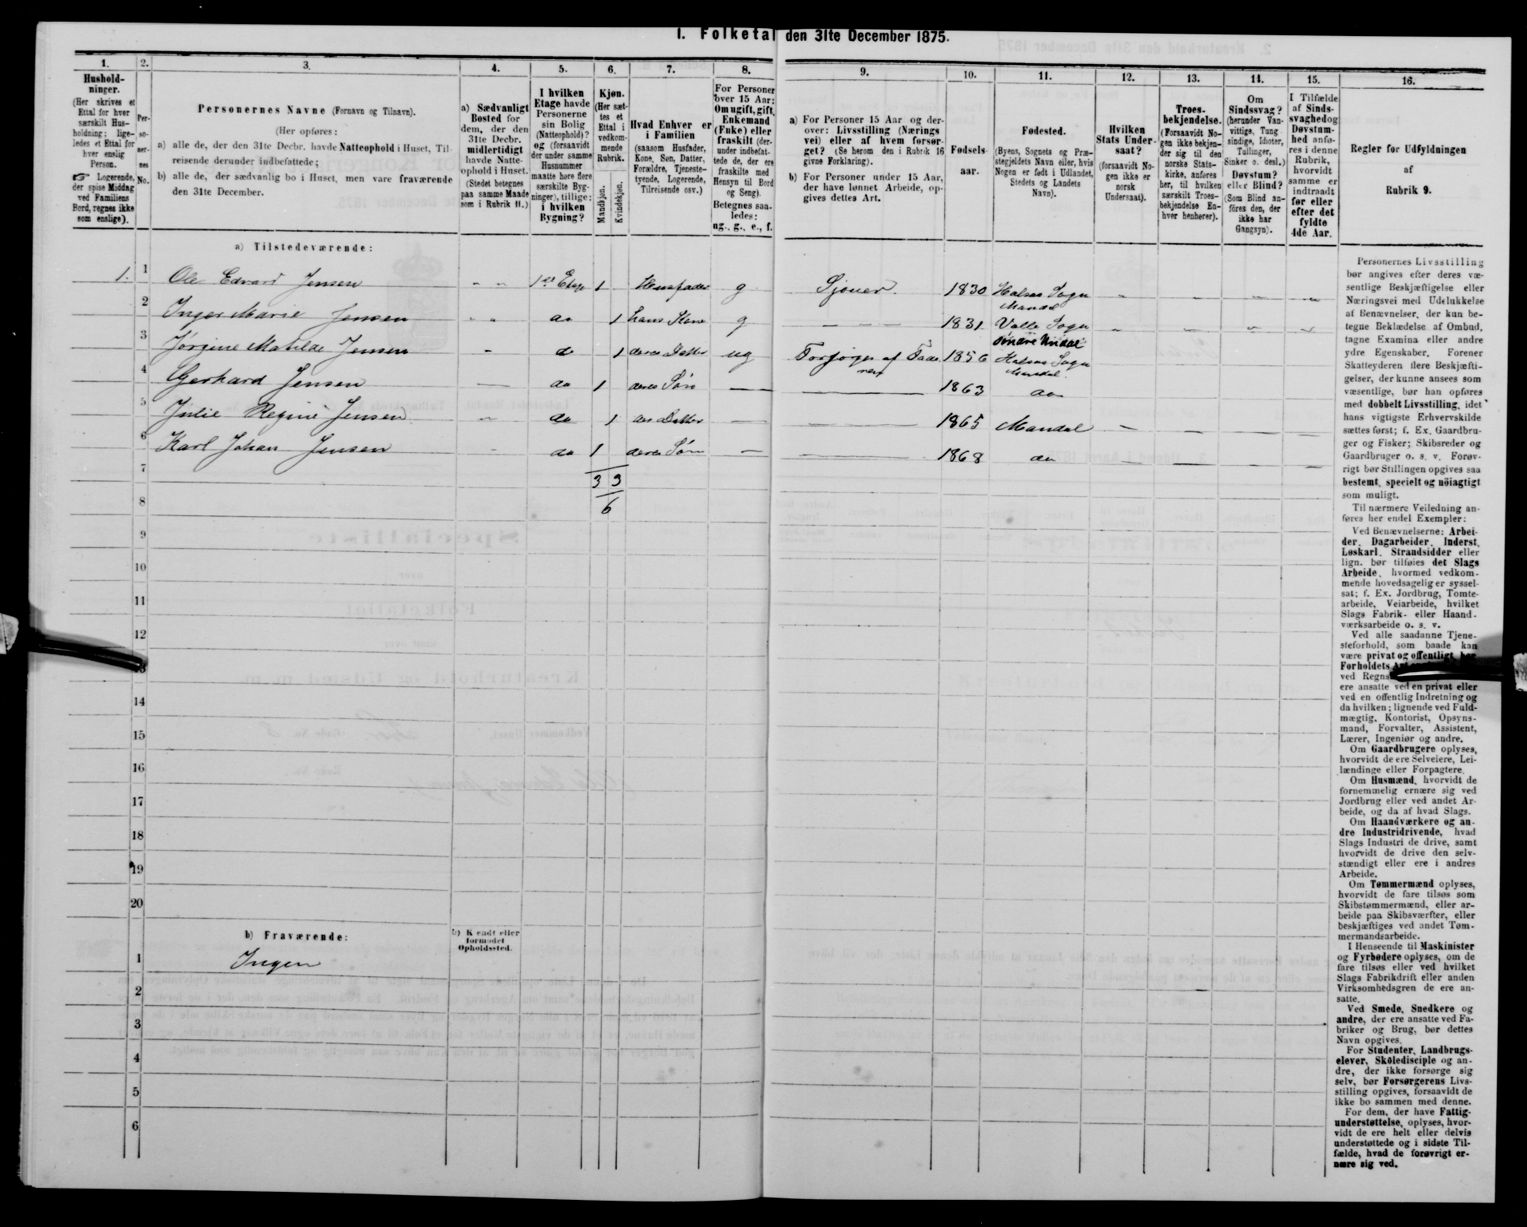 I. Folketal den 31te December 1875.
1.
Hushold-
ninger.
(Her skrives et
Ettal for hver
særskilt Hus-
holdning; lige-
ledes et Ettal for
hver enslig
Person.
☞ Logerende,
der spise Middag
ved Familiens
Bord, regnes ikke
som enslige).
2.
Per-
so-
ner-
nes
No.
3.
Personernes Navne (Fornavn og Tilnavn).
(Her opføres:
a) alle de, der den 31te Decbr. havde Natteophold i Huset, Til-
reisende derunder indbefattede;
b) alle de, der sædvanlig bo i Huset, men vare fraværende
den 31te December.
4.
a) Sædvanligt
Bosted for
dem, der den
31te Decbr.
midlertidigt
havde Natte-
ophold i Huset.
(Stedet betegnes
paa samme Maade
som i Rubrik 11.)
5.
I hvilken
Etage havde
Personerne
sin Bolig
(Natteophold)?
og (forsaavidt
der under samme
Husnummer
maatte høre flere
særskilte Byg-
ninger), tillige:
i hvilken
Bygning?
6.
Kjøn.
(Her sæt-
tes et
Ettal i
vedkom-
mende
Rubrik.
Mandkjøn.
Kvindekjøn.
7.
Hvad Enhver er
i Familien
(saasom Husfader,
Kone, Søn, Datter,
Forældre, Tjeneste-
tyende, Logerende,
Tilreisende osv.)
8.
For Personer
over 15 Aar:
Om ugift, gift,
Enkemand
(Enke) eller
fraskilt (der-
under indbefat-
tede de, der ere
fraskilte med
Hensyn til Bord
og Seng).
Betegnes saa-
ledes:
ug., g., e., f.
9.
a) For Personer 15 Aar og der-
over: Livsstilling (Nærings
vei) eller af hvem forsør-
get? (Se herom den i Rubrik 16
givne Forklaring).
b) For Personer under 15 Aar,
der have lønnet Arbeide, op-
gives dettes Art.
10.
Fødsels-
aar.
11.
Fødested.
(Byens, Sognets og Præ-
stegjeldets Navn eller, hvis
Nogen er født i Udlandet,
Stedets og Landets
Navn).
12.
Hvilken
Stats Under-
saat?
(forsaavidt No-
gen ikke er
norsk
Undersaat).
13.
Troes-
bekjendelse.
(Forsaavidt No-
gen ikke bekjen-
der sig til den
norske Stats-
kirke, anføres
her, til hvilken
særskilt Troes-
bekjendelse En-
hver henhører).
14.
Om
Sindssvag?
(herunder Van-
vittige, Tung
sindige, Idioter,
Tullinger,
Sinker o. desl.)
Døvstum?
eller Blind?
(Som Blind an-
føres den, der
ikke har
Gangsyn).
15.
I Tilfælde
af Sinds-
svaghed og
Døvstum-
hed anfø-
res i denne
Rubrik,
hvorvidt
samme er
indtraadt
før eller
efter det
fyldte
4de Aar.
16.
Regler for Udfyldningen
af
Rubrik 9.
a) Tilstedeværende:
1. 1 Ole Edvard Jensen " " 1ste Etage 1 Husfader g Sjouer 1830 Halsaa Sogn Mandal
2 Inger Marie Jensen " " do 1 hans Kone g 1831 Valle Sogn Søndre Undal
3 Jørgine Matilde Jensen do 1 deres Datter ug Forsørges af Faderen 1856 Halsaa Sogn Mandal
4 Gerhard Jensen do 1 deres Søn 1863 do
5 Julie Regine Jensen do 1 deres Datter 1865 Mandal
6 Karl Johan Jensen do 1 deres Søn 1868 do
7 3 3
8 6
9
10
11
12
13
14
15
16
17
18
19
20
b) Fraværende:
b) Kendt eller
formodet
Opholdssted.
1 Ingen
2
3
4
5
6
Personernes Livsstilling
bør angives efter deres væ-
sentlige Beskjæftigelse eller
Næringsvei med Udelukkelse
af Benævnelser, der kun be-
tegne Beklædelse af Ombud,
tagne Examina eller andre
ydre Egenskaber. Forener
Skatteyderen flere Beskjæfti-
gelser, der kunne ansees som
væsentlige, bør han opføres
med dobbelt Livsstilling, idet
hans vigtigste Erhvervskilde
sættes først; f. Ex. Gaardbru-
ger og Fisker; Skibsreder og
Gaardbruger o. s. v. Forøv-
rigt bør Stillingen opgives saa
bestemt, specielt og nöiagtigt
som muligt.
Til nærmere Veiledning an-
føres her endel Exempler:
Ved Benævnelserne: Arbei-
der, Dagarbeider, Inderst,
Løskarl, Strandsidder eller
lign. bør tilføies det Slags
Arbeide, hvormed vedkom-
mende hovedsagelig er syssel-
sat; f. Ex. Jordbrug, Tomte-
arbeide, Veiarbeide, hvilket
Slags Fabrik- eller Haand-
værksarbeide o. s. v.
Ved alle saadanne Tjene-
steforhold, som baade kan
være privat og offentligt, bør
Forholdets
ved Regns
ere ansatte ved en privat eller
ved en offentlig Indretning og
da hvilken; lignende ved Fuld-
mægtig, Kontorist, Opsyns-
mand, Forvalter, Assistent,
Lærer, Ingeniør og andre.
Om Gaardbrugere oplyses,
hvorvidt de ere Selveiere, Lei-
lændinge eller Forpagtere.
Om Husmænd, hvorvidt de
fornemmelig ernære sig ved
Jordbrug eller ved andet Ar-
beide, og da af hvad Slags.
Om Haandværkere og an-
dre Industridrivende, hvad
Slags Industri de drive, samt
hvorvidt de drive den selv-
stændigt eller ere i andres
Arbeide.
Om Tømmermænd oplyses,
hvorvidt de fare tilsøs som
Skibstømmermænd, eller ar-
beide paa Skibsværfter, eller
beskjæftiges ved andet Tøm-
mermandsarbeide.
I Henseende til Maskinister
og Fyrbødere oplyses, om de
fare tilsøs eller ved hvilket
Slags Fabrikdrift eller anden
Virksomhedsgren de ere an-
satte.
Ved Smede, Snedkere og
andre, der ere ansatte ved Fa-
briker og Brug, bør dettes
Navn opgives.
For Studenter, Landbrugs-
elever, Skoledisciple og an-
dre, der ikke forsørge sig
selv, bør Forsørgerens Livs-
stilling opgives, forsaavidt de
ikke bo sammen med denne.
For dem, der have Fattig-
understøttelse, oplyses, hvor-
vidt de ere helt eller delvis
understøttede og i sidste Til-
fælde, hvad de forøvrigt er-
nære sig ved.